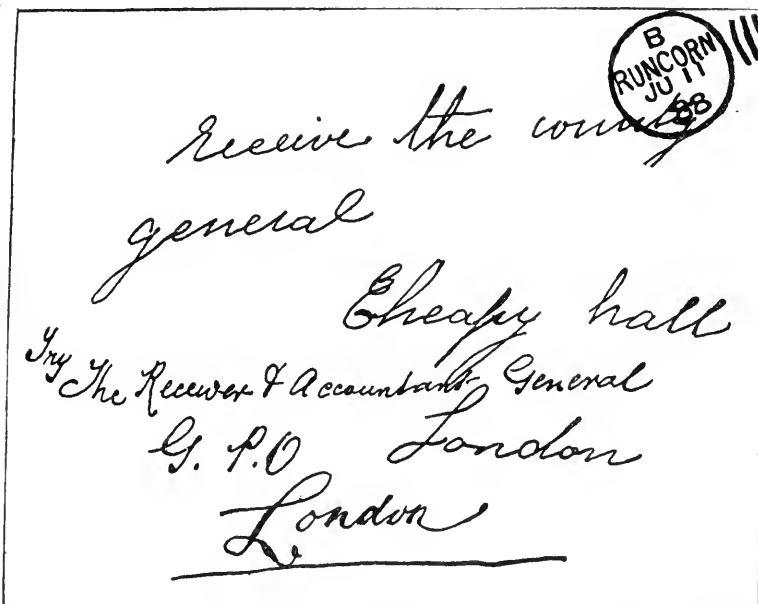 B
RUNCORN
JU 11
88
receive the county
general
Eheapy hall
Try The Receiver & Accountant General
G. P. O London
London